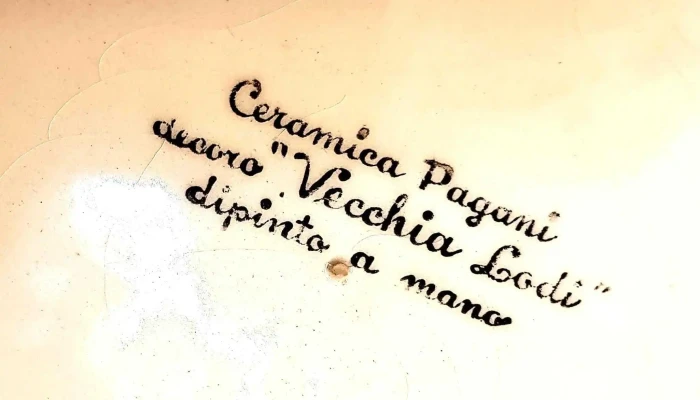 Ceramica Pagani
decoro "Vecchia Lodi"
dipinto a mano